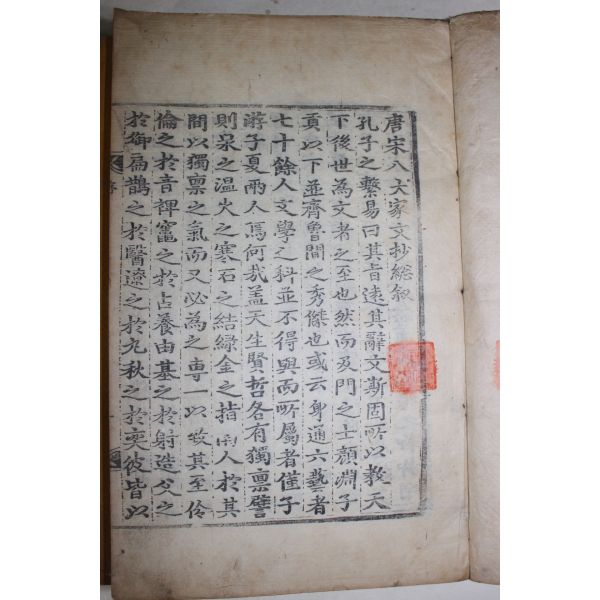 唐宋八大家文抄總敘
孔子之繫易曰其旨遠其辭文斯固所以教天
下後世為文者之至也然而及門之士顏淵子
貢以下並齊魯間之秀傑也或云身通六藝者
七十餘人文學之科並不得與而所屬者僅子
游子夏兩人焉何哉盖天生賢哲各有獨稟譬
則泉之溫火之寒石之結綠金之指南人於其
間以獨稟之氣而又必為之專一以致其至伶
倫之於音裨竈之於占養由基之於射造父之
於御扁鵲之於醫遼之於九秋之於奕彼皆以
序